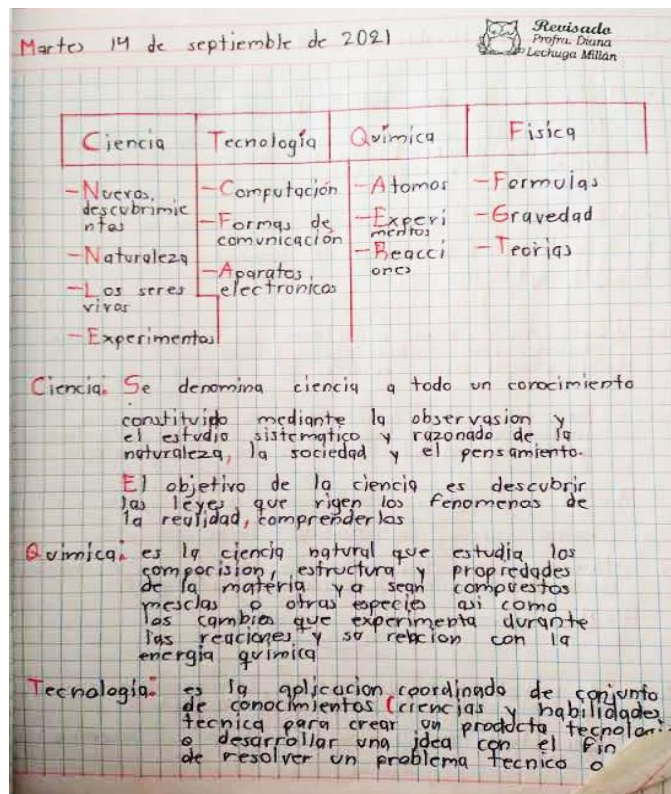 Martes 14 de septiembre de 2021
Revisado
Profra. Diana
Lechuga Millán
Ciencia
Tecnología
Química
Fisica
-Nuevos,
descubrimie
ntos
-Naturaleza
-Los seres
vivos
-Experimentos
-Computación
-Formas de
comunicación
-Aparatos,
electronicos
-Atomos
-Experi
mentos
-Reacci
ones
-Formulas
-Gravedad
-Teorias
Ciencia: Se denomina ciencia a todo un conocimiento
constituido mediante la observasion y
el estudio sistematico y razonado de la
naturaleza, la sociedad y el pensamiento.
El objetivo de la ciencia es descubrir
las leyes que rigen los fenomenos de
la realidad, comprenderlas
Quimica: es la ciencia natural que estudia los
compocision, estructura y propredades
de la materia ya sean compuestos
mesclas o otras especies asi como
los cambios que experimenta durante
las reaciones y su relacion con la
energia química
Tecnología: es la aplicacion coordinado de conjunto
de conocimientos (ciencias y habilidades
tecnica para crear un producto
o desarrollar una idea con el fin
de resolver un problema tecnico o